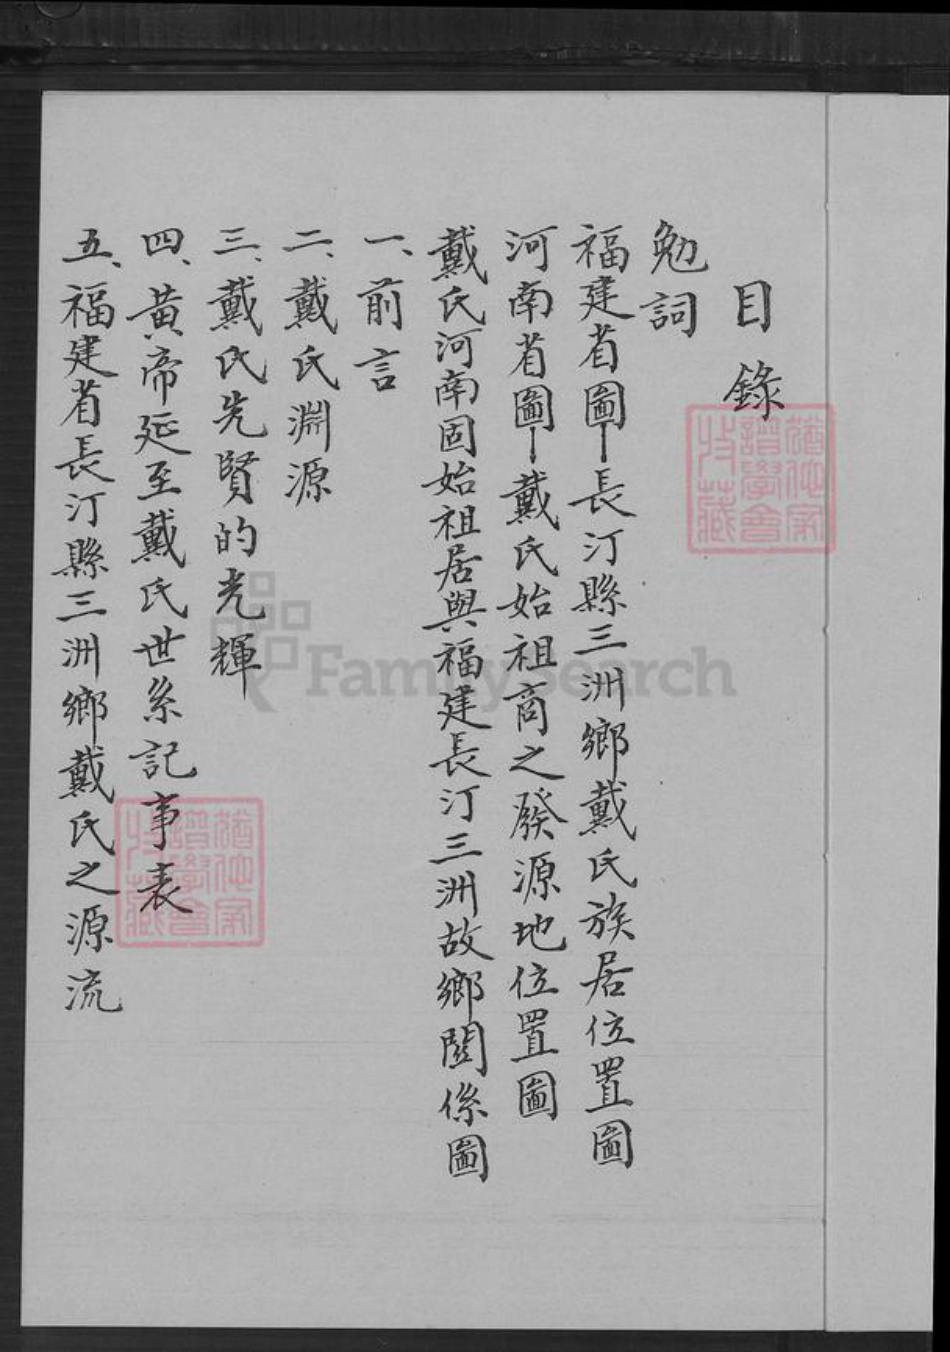 目錄
勉詞
福建省圖—長汀縣三洲鄉戴氏族居位置圖
河南省圖—戴氏始祖商之發源地位置圖
戴氏河南固始祖居與福建長汀三洲故鄉関係圖
一、前言
二、戴氏淵源
三、戴氏先賢的光輝
四、黃帝延至戴氏世系記事表
五、福建省長汀縣三洲鄉戴氏之源流
FamilySearch